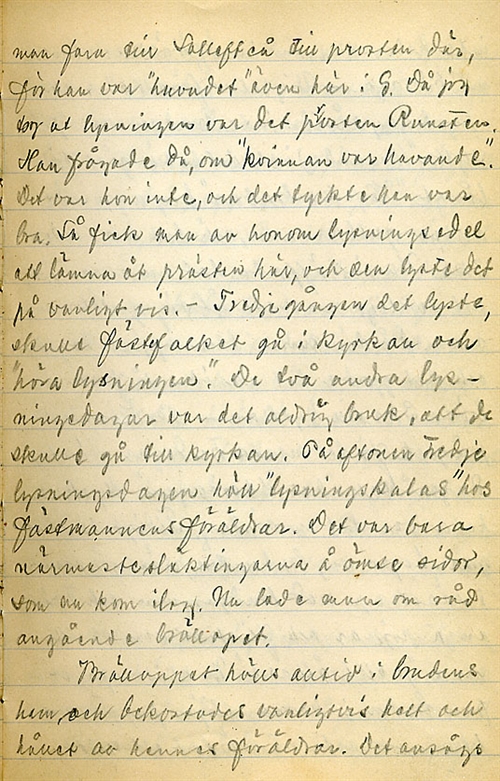 man fara till Sollefteå till prosten där,
för han var "huvudet" även här i G. Då jag
tog ut lysningen var det prosten Runsten.
Han frågade då, om "kvinnan var havande".
Det var hon inte, och det tyckte han var
bra. Så fick man av honom lysningsedel
att lämna åt prästen här, och den lyste det
på vanligt vis. – Tredje gången det lyste,
skulle fästfolket gå i kyrkan och
"höra lysningen". De två andra lys-
ningsdagar var det aldrig bruk, att de
skulle gå till kyrkan. På aftonen tredje
lysningsdagen höll "lysningskalas" hos
fästmannens föräldrar. Det var bara
närmaste släktingarna å ömse sidor,
som nu kom ihop. Nu lade man om råd
angående bröllopet.
Bröllopet hölls alltid i brudens
hem, och bekostades vanligtvis helt och
hållet av hennes föräldrar. Det ansågs